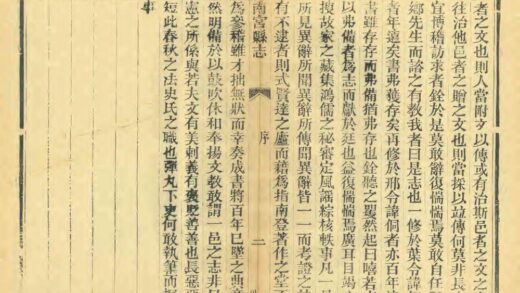 者之文也則人當附文以傳或有治斯邑者之文之
往治他邑者之贈之文也則當採以竝傳何莫非長
宜博稽訪求者銓於是莫敢辭復惴惴焉莫敢自任
鄉先生而諮之有教我者曰是志也一修於葉令諱
年遠矣書弗獲存矣再修於邢令諱侗者亦百年
書雖存存而弗備猶弗存也銓聽之矍然起曰嘻若
以弗備者爲志而獻於廷也益復惴惴焉廣耳目竭
搜故家之藏集鴻儒之秘審定風謡綜核軼事凡一
所見異辭所聞異辭所傳聞異辭皆一一而考證之
有不逮者則式賢達之廬而藉爲指南登著作之堂
南宮縣志 序 二
爲參稽雖才拙無狀而幸奏成書將百年已墜之典
然明備於以鼓吹休和奉揚文教敢謂一邑之志非
憲之所係與若夫文有美刺義有褒貶善善也長惡
短此春秋之法史氏之職也彈丸下吏何敢執筆而